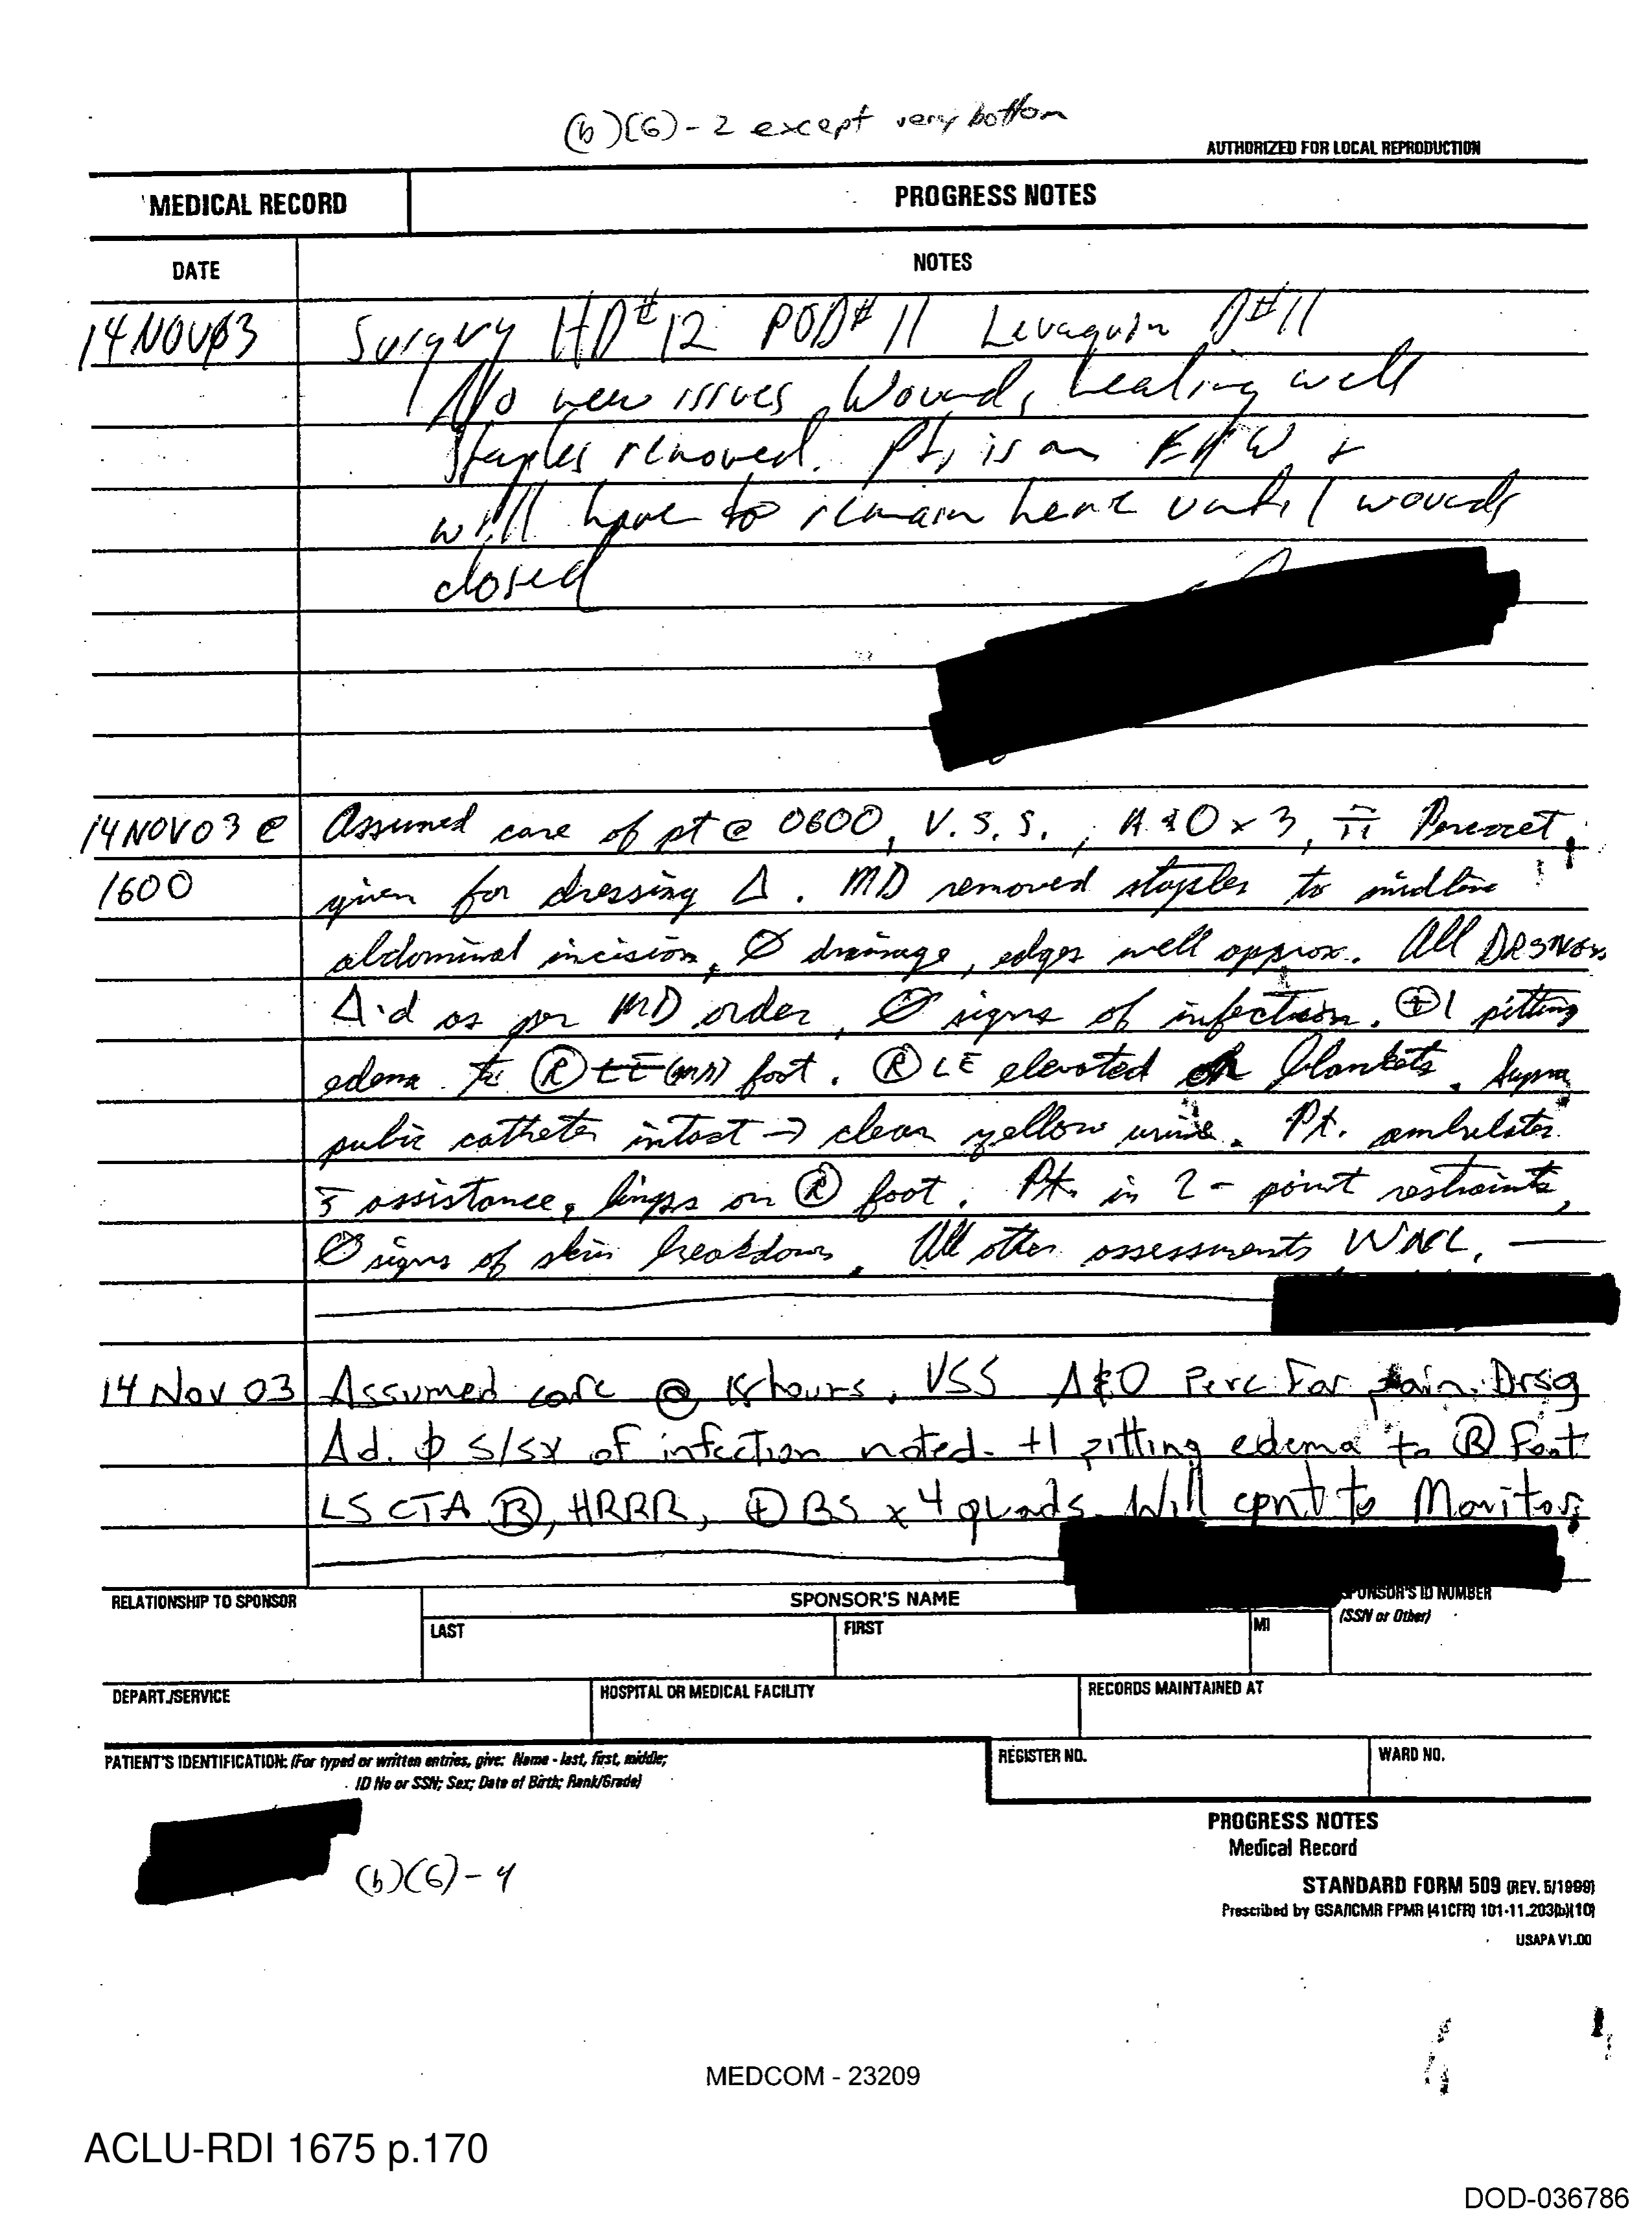 (b)(6)-2 except very bottom
AUTHORIZED FOR LOCAL REPRODUCTION
MEDICAL RECORD
PROGRESS NOTES
DATE
NOTES
14 NOV 03 Surgery HD#12 POD#11 Levaquin D#11
No new issues, Wounds healing well
Staples removed. Pt, is an EPW +
will have to remain here until wounds
closed
14 NOV 03 @ Assumed care of pt @ 0600, V.S.S., A&O x 3, ii Percocet
1600 given for dressing Δ. MD removed staples to midline
abdominal incision, Ø drainage, edges well approx. All
Δ'd as per MD order, Ø signs of infection. ⊕1 pitting
edema to Ⓡ LE foot. Ⓡ LE elevated on blankets. Supra
pubic catheter intact → clear yellow urine. Pt. ambulates
assistance, limps on Ⓡ foot. Pt. in 2-point restraints,
Ø signs of skin breakdown. All other assessments WNL.
14 Nov 03 Assumed care @ 18 hours, VSS A&O Perc For pain. Drsg
Δd. Ø S/Sx of infection noted. +1 pitting edema to Ⓡ Foot
LS CTA Ⓑ, HRRR, ⊕ BS x 4 quads. Will cont to Monitor.
RELATIONSHIP TO SPONSOR
SPONSOR'S NAME
SPONSOR'S ID NUMBER
(SSN or Other)
LAST
FIRST
MI
DEPART./SERVICE
HOSPITAL OR MEDICAL FACILITY
RECORDS MAINTAINED AT
PATIENT'S IDENTIFICATION: (For typed or written entries, give: Name - last, first, middle;
ID No or SSN; Sex; Date of Birth; Rank/Grade)
REGISTER NO.
WARD NO.
(b)(6)-4
PROGRESS NOTES
Medical Record
STANDARD FORM 509 (REV. 5/1999)
Prescribed by GSA/ICMR FPMR (41CFR) 101-11.203(b)(10)
USAPA V1.00
MEDCOM - 23209
ACLU-RDI 1675 p.170
DOD-036786